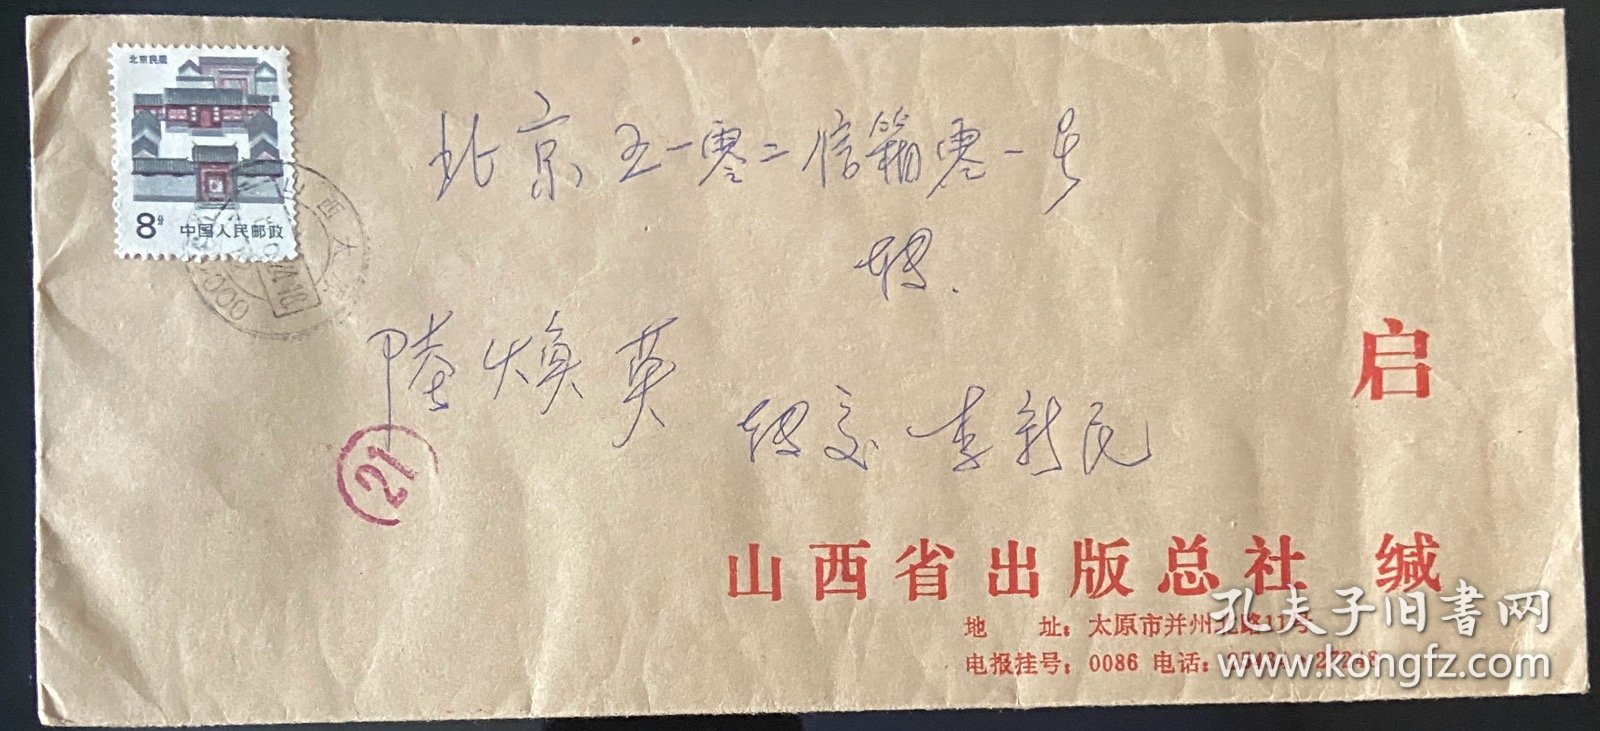 北京民居
8分 中国人民邮政
山西太
北京五一零二信箱零一号
转.
陆焕英
转交李新民
21
启
山西省出版总社 缄
地 址：太原市并州北路11号
电报挂号：0086 电话：
孔夫子旧书网
www.kongfz.com